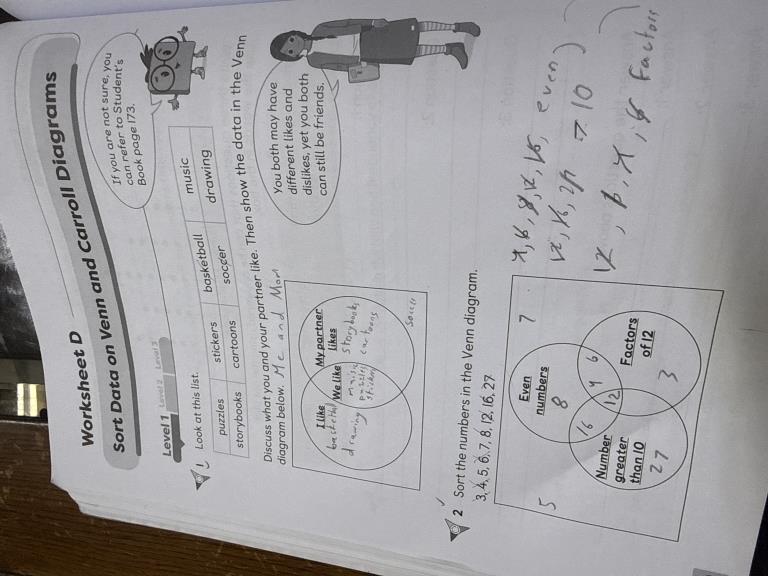 Worksheet D
Sort Data on Venn and Carroll Diagrams
If you are not sure, you
can refer to Student's
Book page 173.
Level 1 Level 2 Level 3
1 Look at this list.
puzzles stickers basketball music
storybooks cartoons soccer drawing
Discuss what you and your partner like. Then show the data in the Venn
diagram below. Me and Mom
You both may have
different likes and
dislikes, yet you both
can still be friends.
I like
We like
My partner
likes
drawing
music
puzzles
stickers
storybooks
cartoons
soccer
2 Sort the numbers in the Venn diagram.
3, 4, 5, 6, 7, 8, 12, 16, 27
5
7
Even
numbers
8
16
4
6
12
Number
greater
than 10
27
Factors
of 12
3
4, 6, 8, 12, 16, even)
> 10
Factors